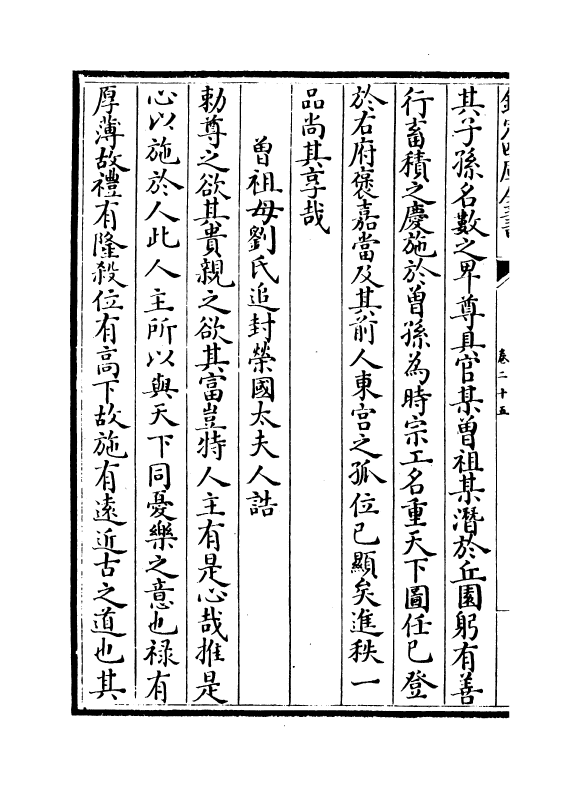 欽定四庫全書
卷二十五
其子孫名數之畀尊具官某曾祖某潛於丘園躬有善
行畜積之慶施於曾孫為時宗工名重天下圖任已登
於右府褒嘉當及其前人東宮之孤位已顯矣進秩一
品尚其享哉
曾祖母劉氏追封榮國太夫人誥
勅尊之欲其貴親之欲其富豈特人主有是心哉推是
心以施於人此人主所以與天下同憂樂之意也祿有
厚薄故禮有隆殺位有高下故施有遠近古之道也其